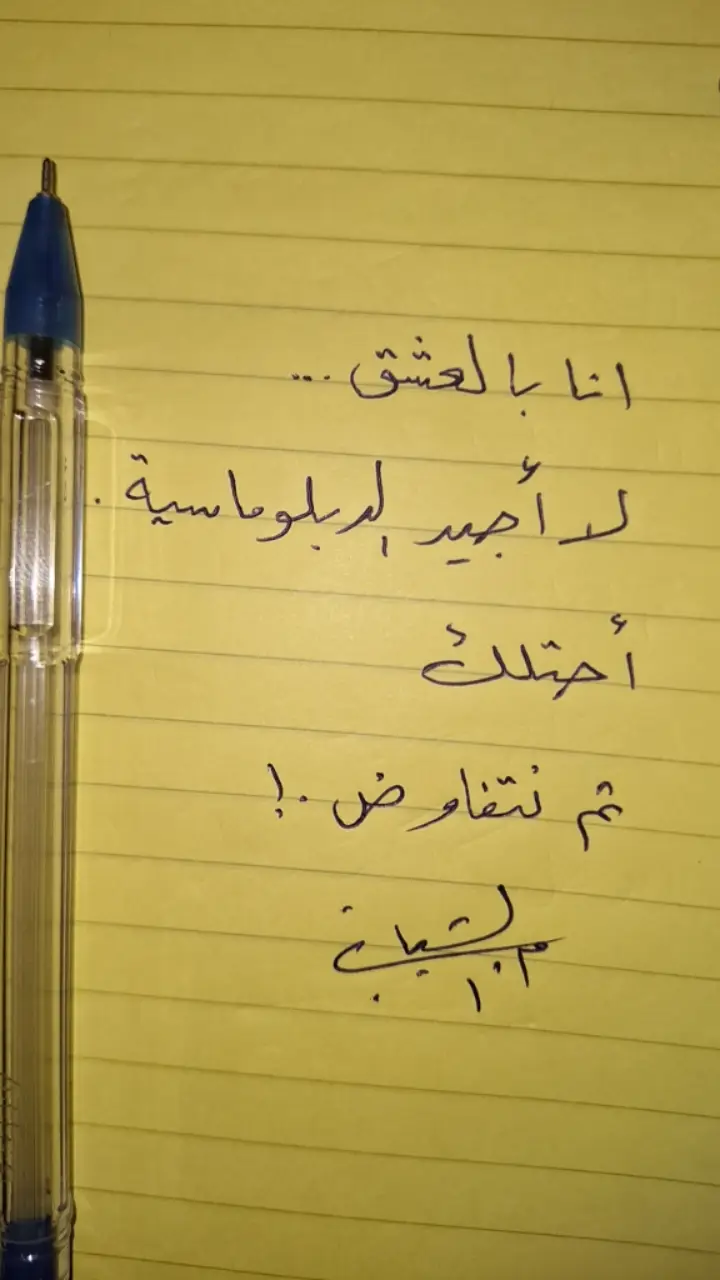 انا بالعشق ...
لا أجيد الدبلوماسية .
أحتلك
ثم نتفاوض .!